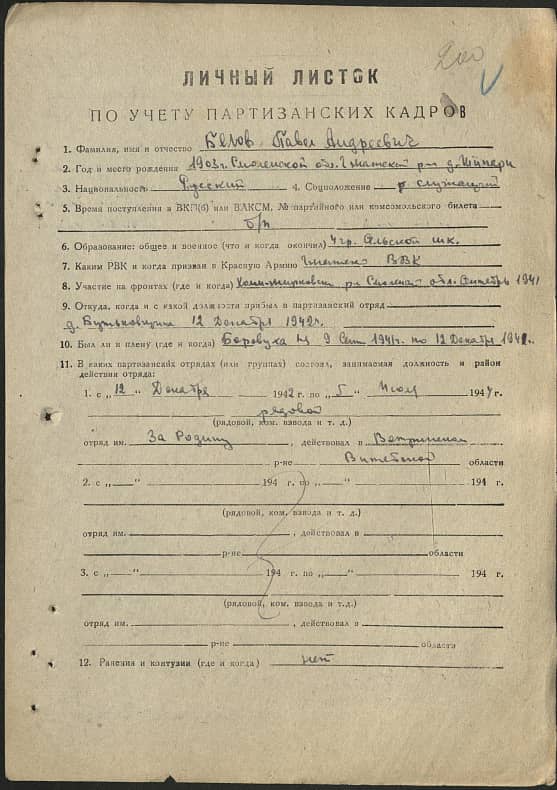 200
ЛИЧНЫЙ ЛИСТОК
ПО УЧЕТУ ПАРТИЗАНСКИХ КАДРОВ
1. Фамилия, имя и отчество Белов Павел Андреевич
2. Год и место рождения 1903 г. Смоленской обл. Гжатский р-н д.
3. Национальность Русский 4. Соцположение служащий
5. Время поступления в ВКП(б) или ВЛКСМ, № партийного или комсомольского билета
б/п
6. Образование: общее и военное (что и когда окончил) 4 гр. Сельской шк.
7. Каким РВК и когда призван в Красную Армию РВК
8. Участие на фронтах (где и когда) р-н Смоленск обл. 1941
9. Откуда, когда и с какой должности прибыл в партизанский отряд
д. 12 Декабря 1942 г.
10. Был ли в плену (где и когда) Боровуха 9 Сент 1941 г. по 12 Декабря 1942 г.
11. В каких партизанских отрядах (или группах) состоял, занимаемая должность и район
действия отряда:
1. с „12“ Декабря 1942 г. по „5“ Июля 1944 г.
рядовой
(рядовой, ком. взвода и т. д.)
отряд им. За Родину, действовал в
р-не Витебской области
2. с „—“ 194 г. по „—“ 194 г.
(рядовой, ком. взвода и т. д.)
отряд им. , действовал в
р-не области
3. с „—“ 194 г. по „—“ 194 г.
(рядовой, ком. взвода и т.д.)
отряд им. , действовал в
р-не области
12. Ранения и контузии (где и когда) нет